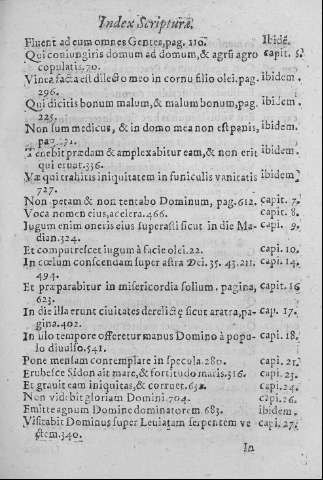 Index Scripturæ.
Fluent ad eum omnes Gentes, pag. 110. Ibidē.
Qui coniungiris domum ad domum, & agrū agro capit. 5.
copulatis. 70.
Vinea facta est dilecto meo in cornu filio olei. pag. ibidem.
296.
Qui dicitis bonum malum, & malum bonum, pag. ibidem.
225.
Non sum medicus, & in domo mea non est panis, ibidem.
pag.
Tenebit prædam & amplexabitur eam, & non erit ibidem.
qui eruat. 336.
Væ qui trahitis iniquitatem in funiculis vanitatis ibidem.
727.
Non petam & non tentabo Dominum, pag. 612. capit. 7.
Voca nomen eius, accelera. 466. capit. 8.
Iugum enim oneris eius superasti sicut in die Ma- capi. 9.
dian. 324.
Et computrescet iugum à facie olei. 22. capi. 10.
In cœlum conscendam super astra Dei. 35. 43. 211. capi. 14.
494.
Et præparabitur in misericordia solium. pagina, capit. 16
623.
In die illa erunt ciuitates derelictę sicut aratra, pa- cap. 17.
gina. 402.
In illo tempore offeretur munus Domino à popu- capi. 18.
lo diuulso. 541.
Pone mensam contemplare in specula. 280. capi. 21.
Erubesce Sidon ait mare, & fortitudo maris. 316. capi. 23.
Et grauit eam iniquitas, & corruet. capi. 24.
Non videbit gloriam Domini. 704. capi. 26.
Emitte agnum Domine dominatorem. 683. ibidem.
Visitabit Dominus super Leuiatam serpentem ve capi. 27.
ctem. 340.
In